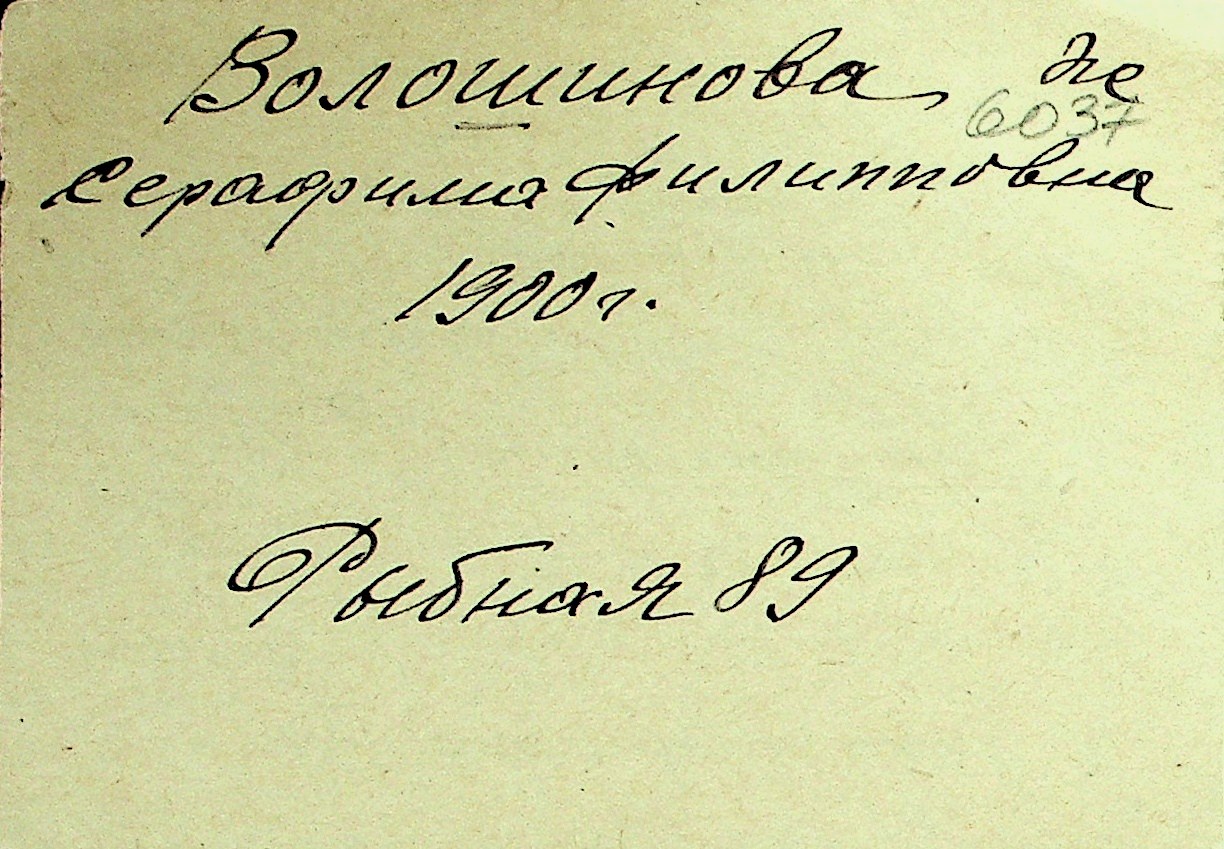 Волошинова
6037
Серафима Филипповна
1900 г.
Рыбная 89